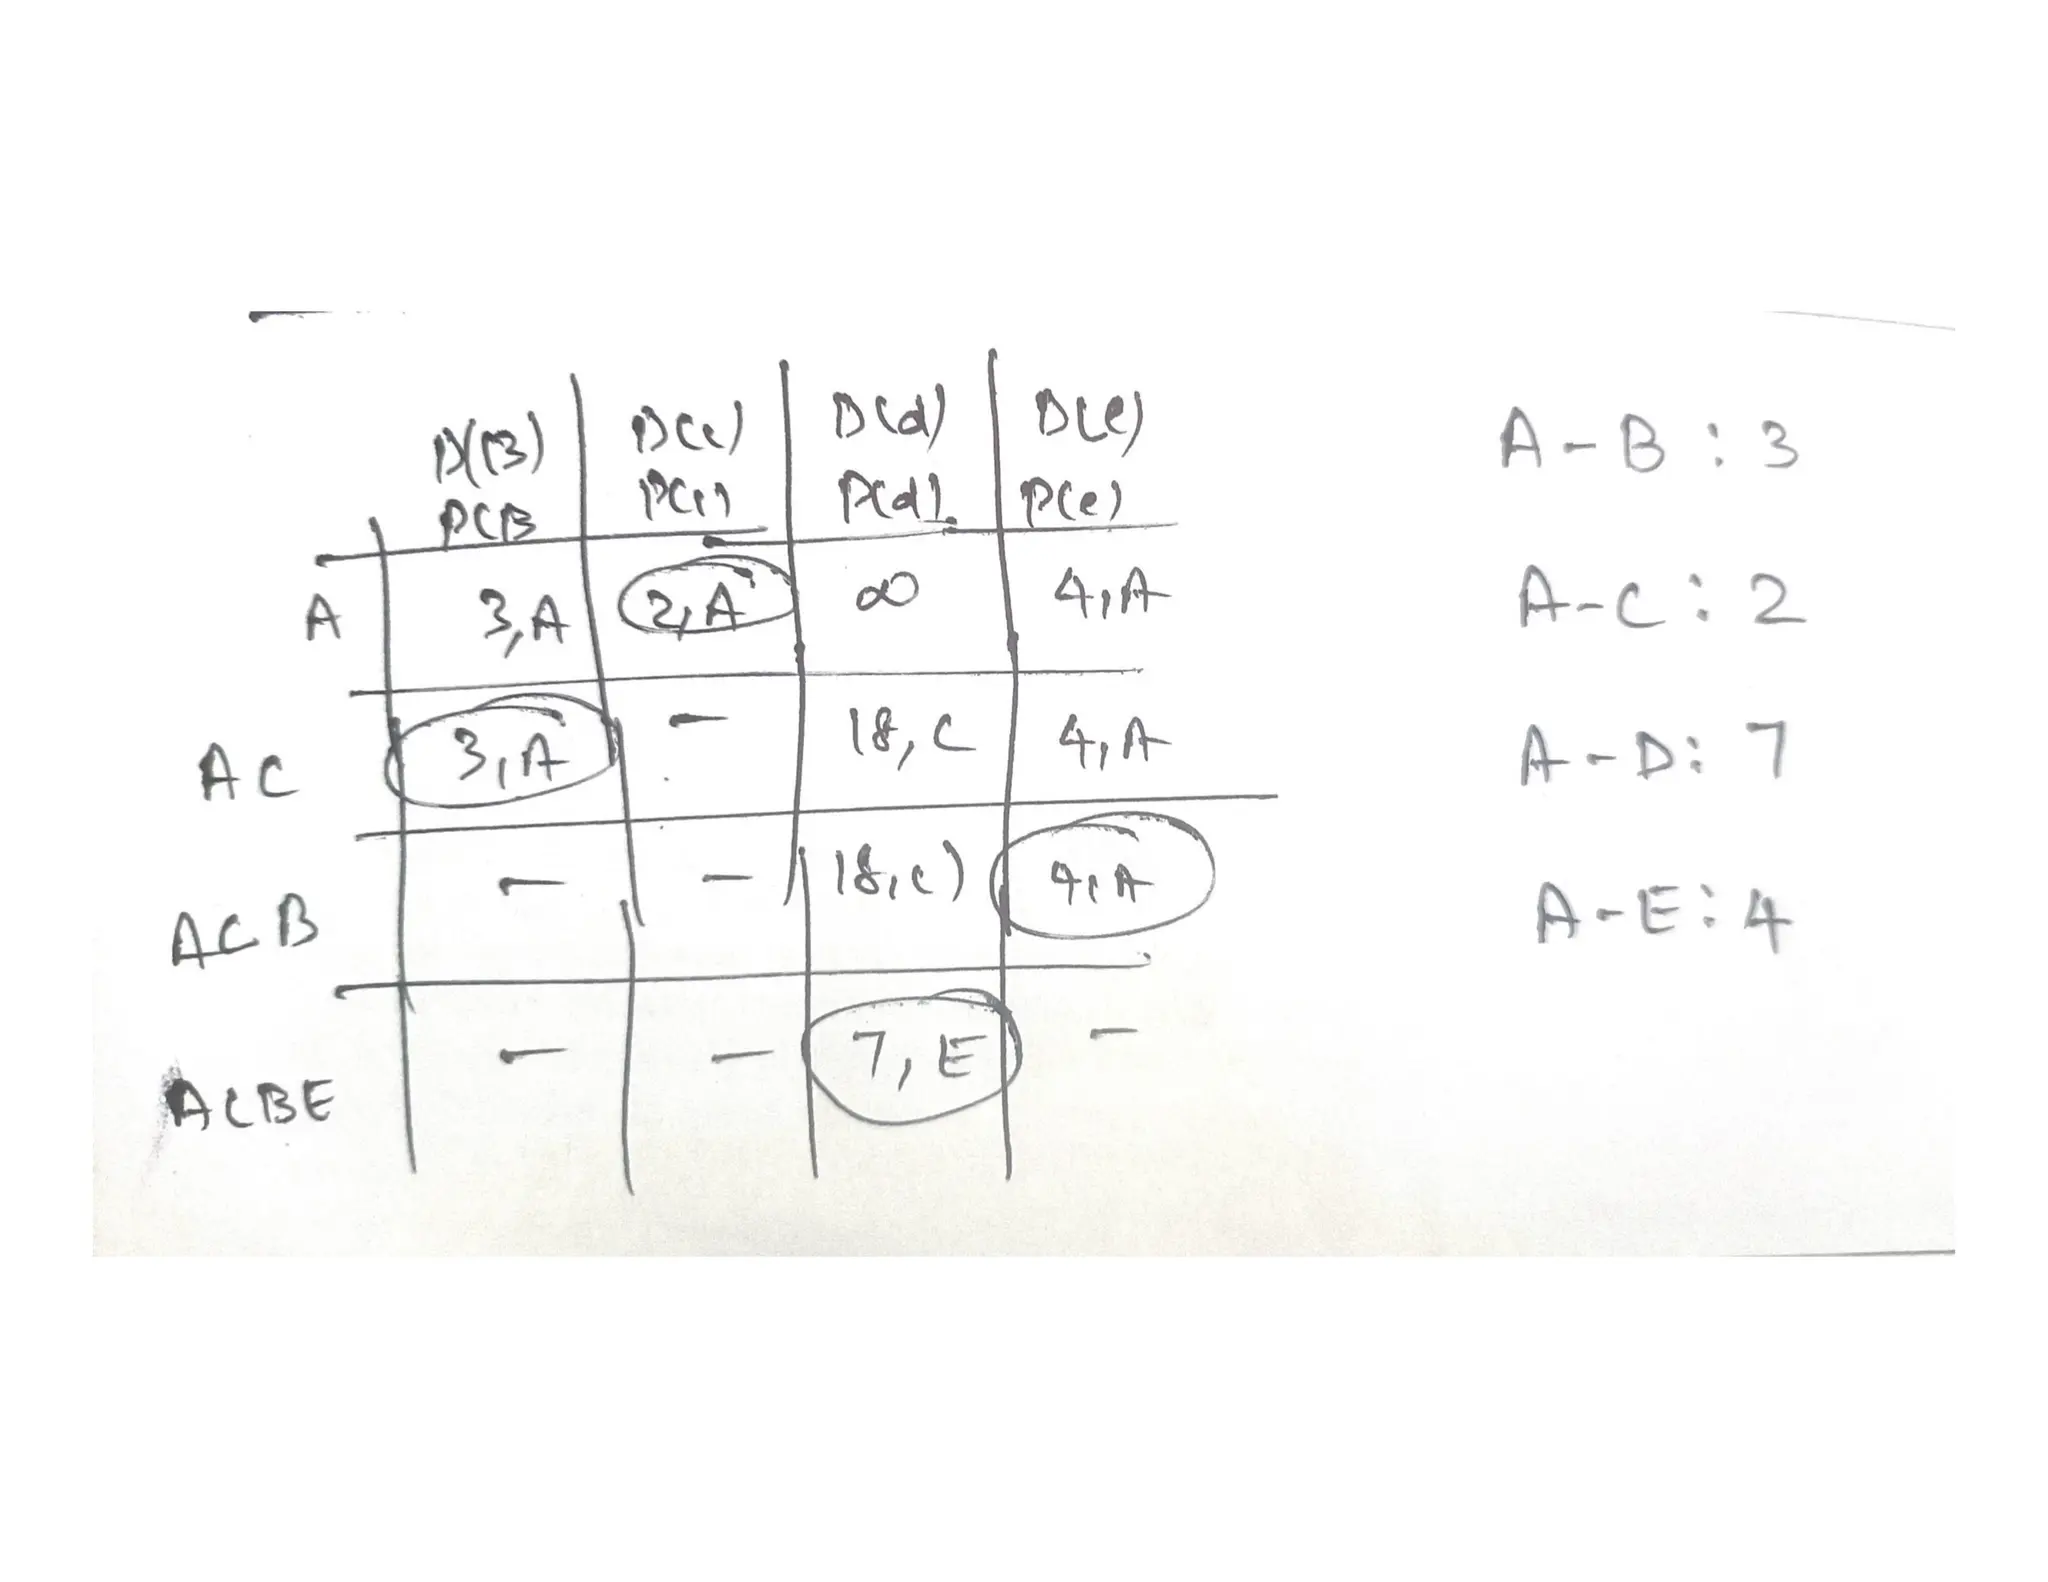 D(B) D(c) D(d) D(e)
P(B P(c) P(d) P(e)
A 3,A 2,A ∞ 4,A
AC 3,A - 18,C 4,A
ACB - - 18,c) 4,A
ACBE - - 7,E -
A-B: 3
A-C: 2
A-D: 7
A-E: 4